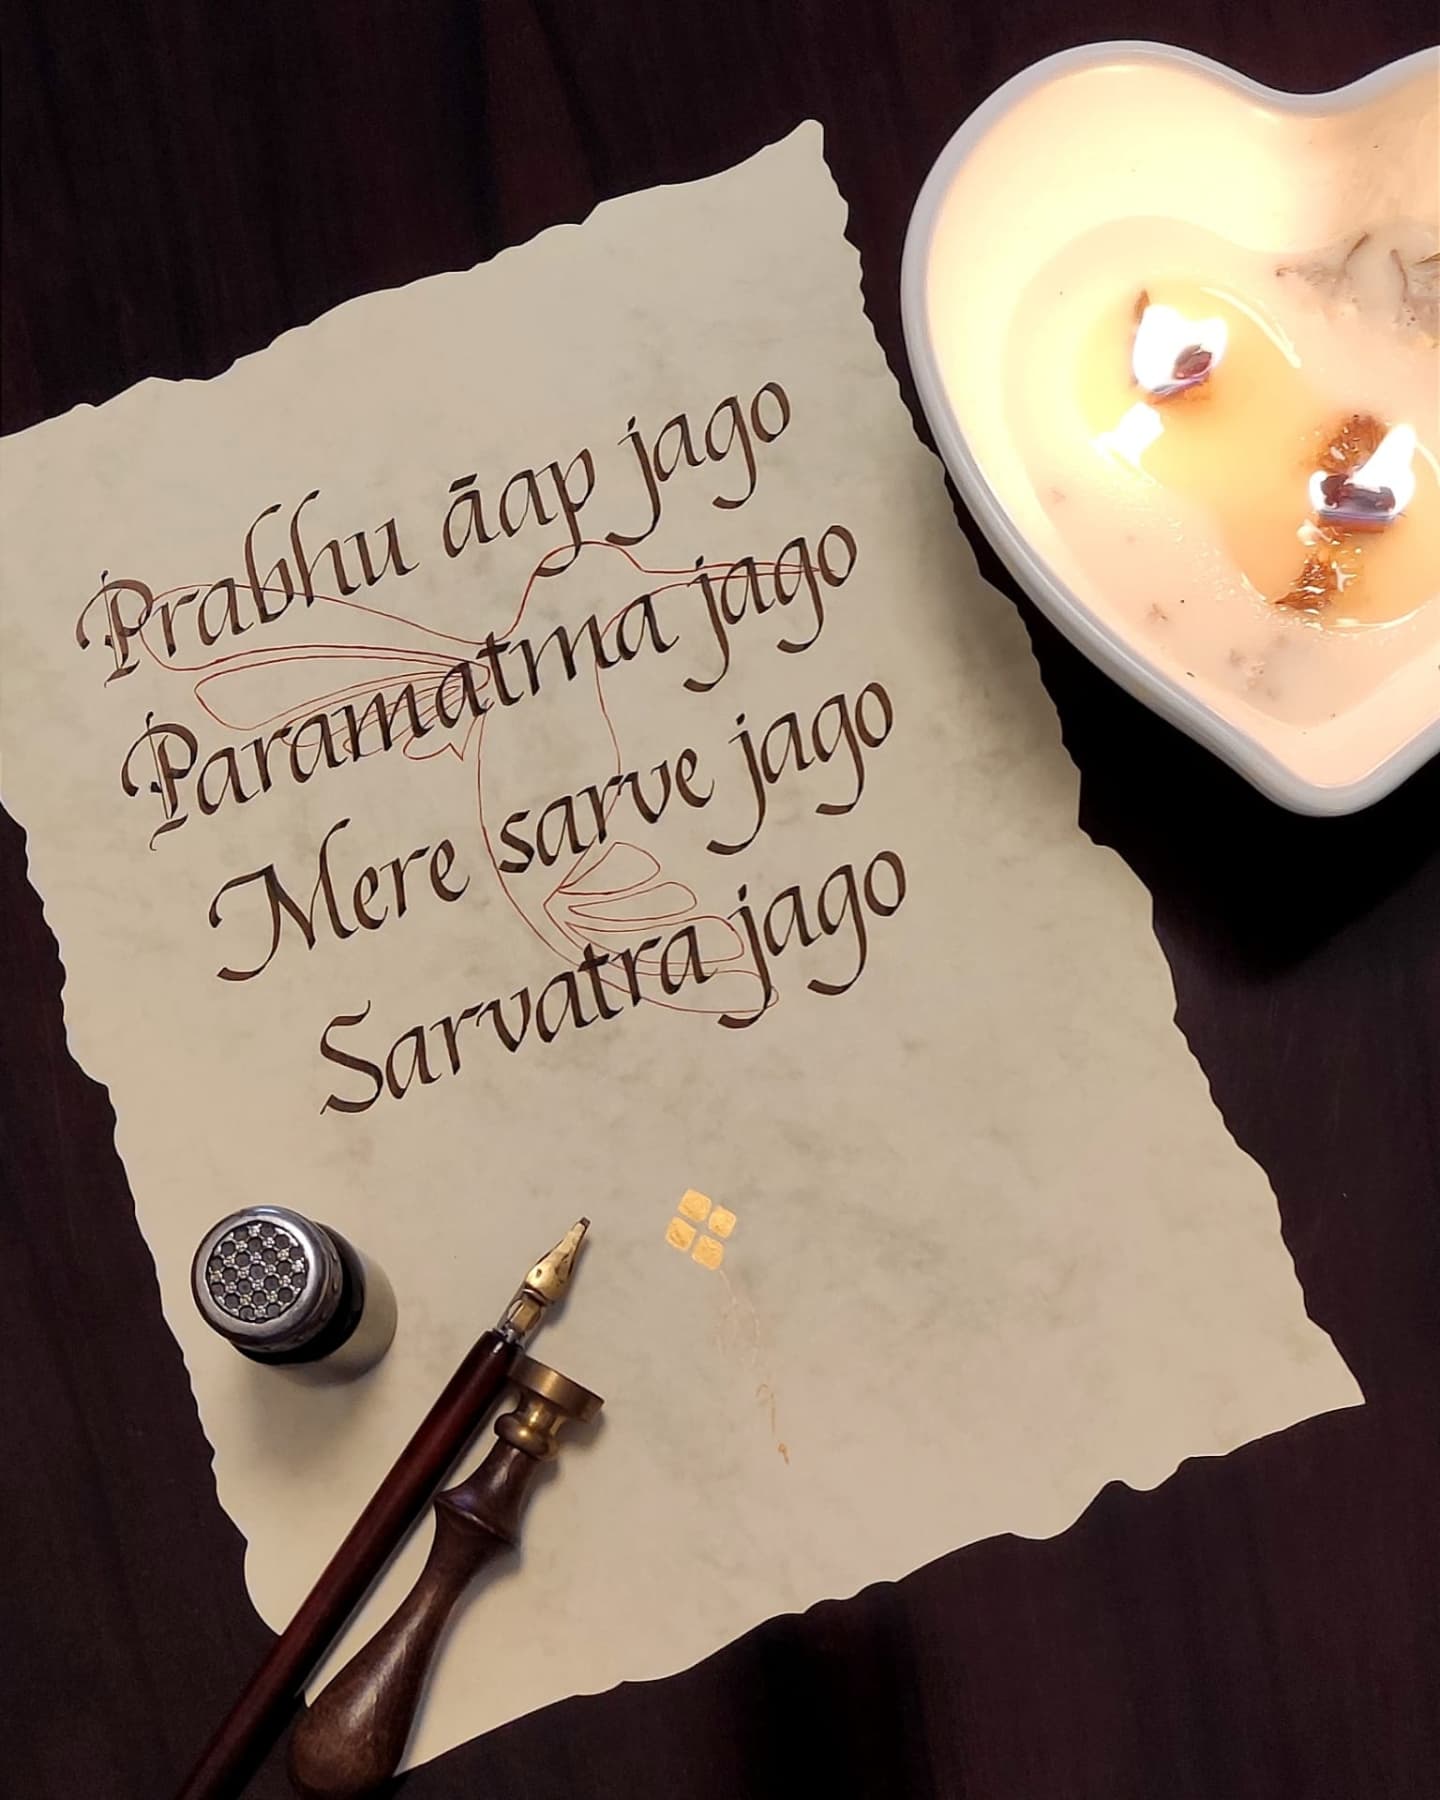 Prabhu āap jago
Paramatma jago
Mere sarve jago
Sarvatra jago